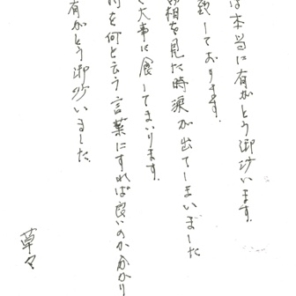 は本当に有がとう御坐います。
致しております。
お箱を見た時涙が出てしまいました
と大事に食してまいります。
何と言う言葉にすれば良いのか分かり
有がとう御坐いました。
草々